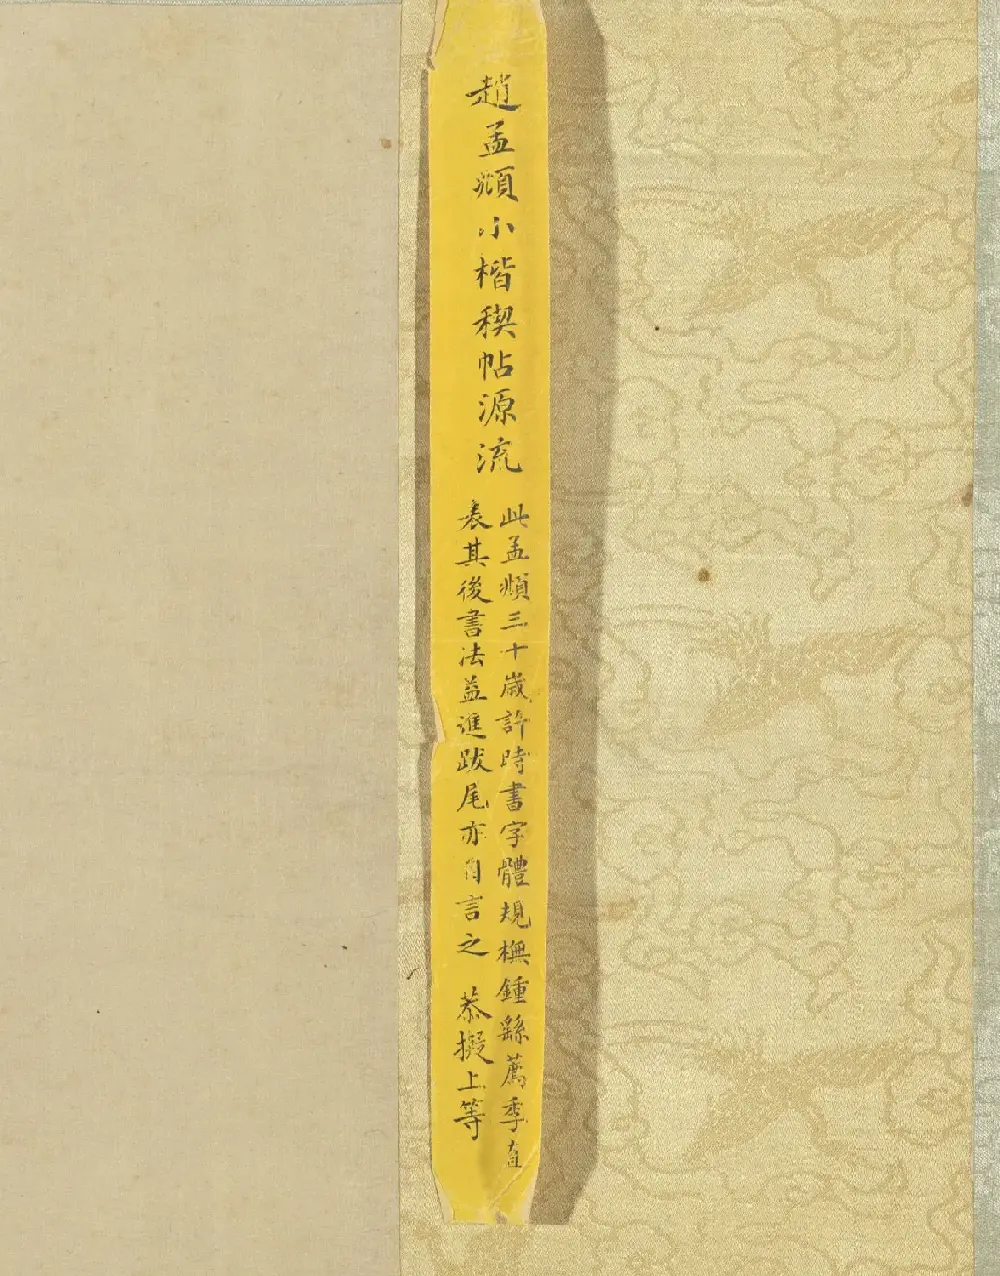 趙孟頫小楷稧帖源流
此孟頫三十歲許時書字體規橅鍾繇薦季直
表其後書法益進跋尾亦自言之 恭擬上等